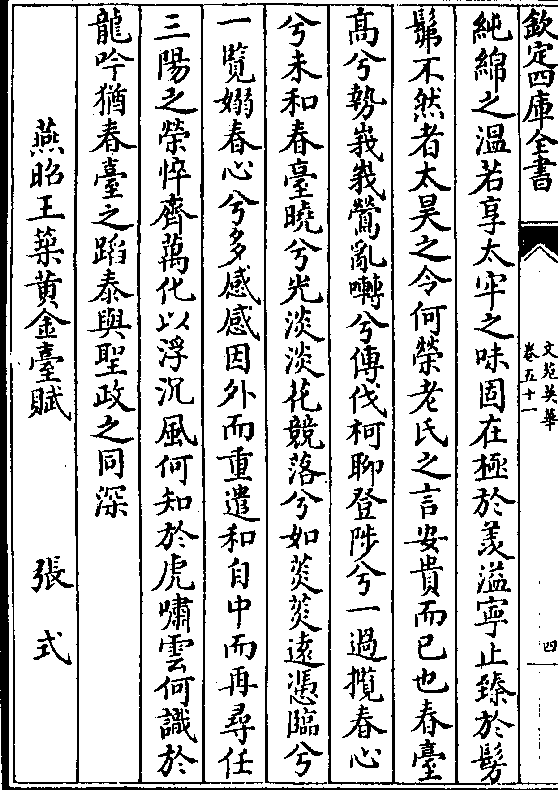 欽定四庫全書
文苑英華
卷五十一
四
純綿之溫若享太牢之味固在極於羙溢寧止臻於髣
髴不然者太昊之令何榮老氏之言安貴而已也春臺
高兮勢峩峩鶯亂囀兮傳伐柯聊登陟兮一過攬春心
兮未和春臺曉兮光淡淡花競落兮如莢莢逺憑臨兮
一覧嫋春心兮多感感因外而重遣和自中而再尋任
三陽之榮悴齊萬化以浮沉風何知於虎嘯雲何識於
龍吟猶春臺之蹈泰與聖政之同深
燕昭王築黄金臺賦 張式